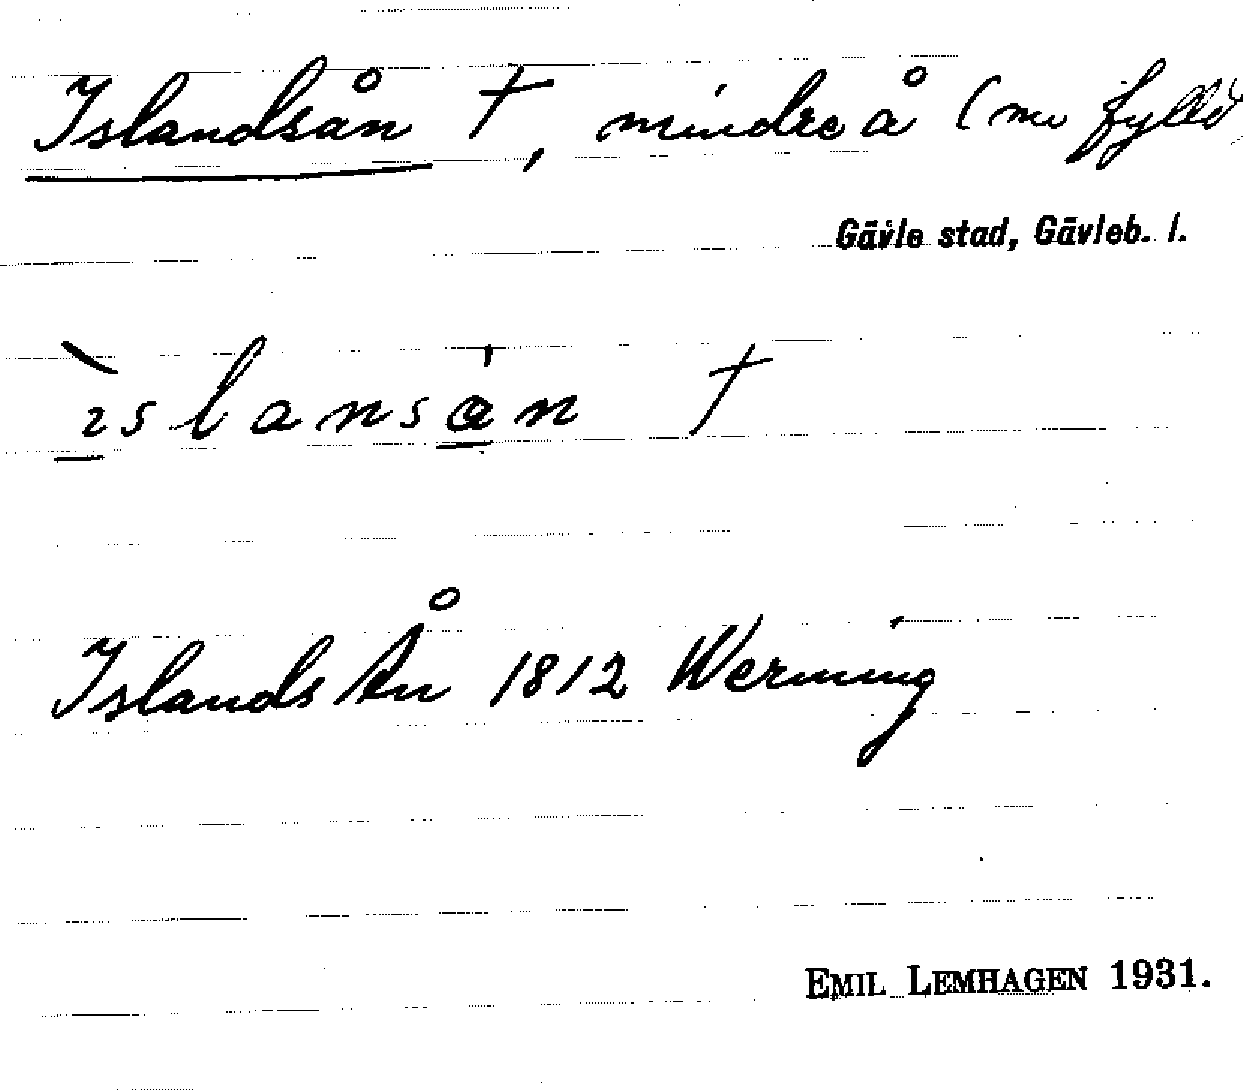 Islandsån †, mindre å (nu fylld)
Gävle stad, Gävleb. l.
ìslansa̍n †
Islands Ån 1812 Werming
EMIL LEMHAGEN 1931.